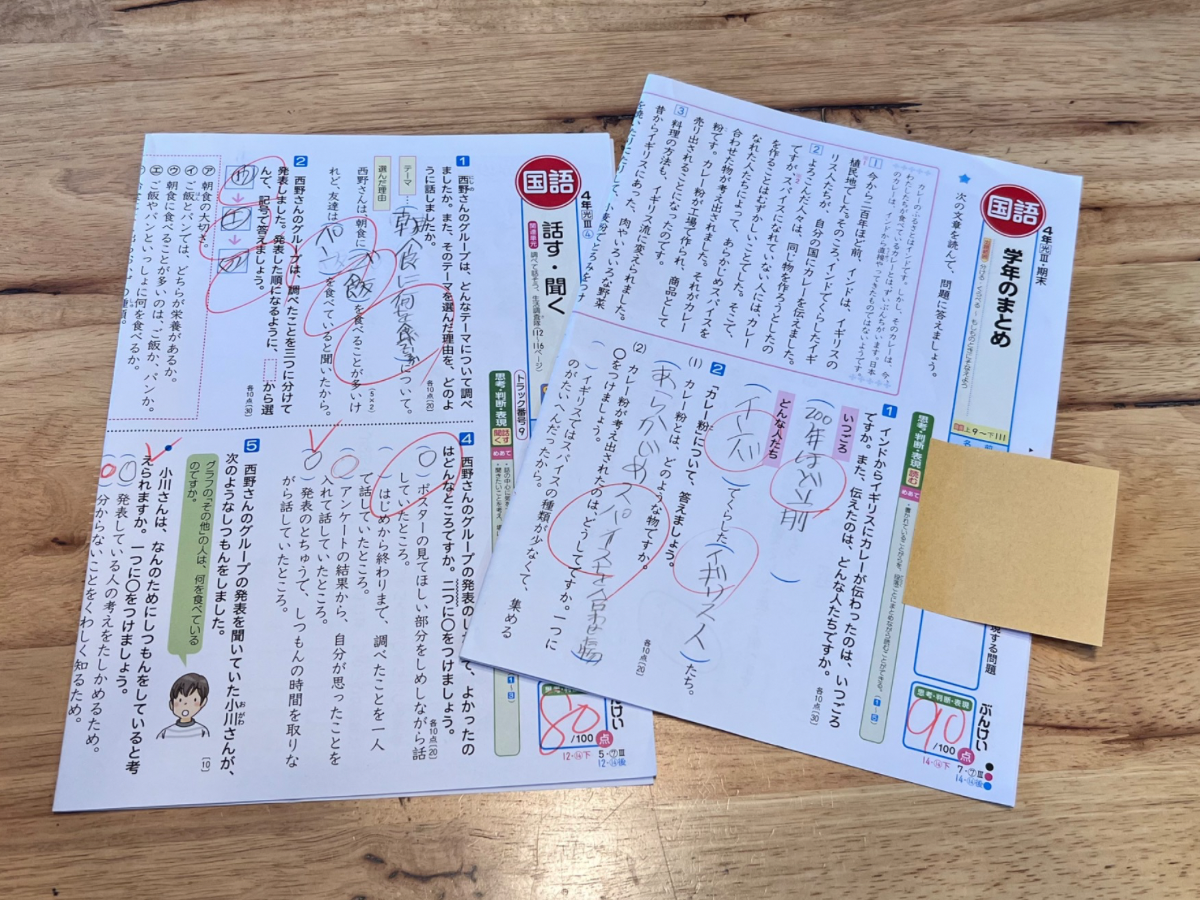 国語
4年光Ⅲ・期末
学年のまとめ
上9〜下111
次の文章を読んで、問題に答えましょう。
1
今から二百年ほど前、インドは、イギリスの
植民地でした。そのころ、インドでくらしたイギ
リス人たちが、自分の国にカレーを伝えました。
2
よろこんだ人々は、同じ物を作ろうとしたの
ですが、スパイスになれていない人には、カレー
を作ることはむずかしいことでした。そこで、
なれた人たちによって、あらかじめスパイスを
合わせた物が考え出されました。それがカレー
粉です。カレー粉が工場で作られ、商品として
売り出されることになったのです。
3
料理の方法も、イギリス流に変えられました。
昔からイギリスにあった、肉やいろいろな野菜
思考・判断・表現
読む
めあて
1
インドからイギリスにカレーが伝わったのは、いつごろ
ですか。また、伝えたのは、どんな人たちですか。
各10点〔30〕
いつごろ
200年ほど前
どんな人たち
インド
でくらした
イギリス人
たち。
2
「カレー粉」について、答えましょう。
各10点〔20〕
(1) カレー粉とは、どのような物ですか。
あらかじめスパイスを合わせた物
(2) カレー粉が考え出されたのは、どうしてですか。一つに
〇をつけましょう。
イギリスではスパイスの種類が少なくて、集める
のがたいへんだったから。
現する問題
ぶんけい
思考・判断・表現
90
/100
点
7・⑦Ⅲ
14・⑭下
14・⑭後
国語
4年光Ⅲ④
話す・聞く
関連単元
調べて話そう、生活調査隊
112〜116ページ
トラック番号9
思考・判断・表現
聞く
話す
めあて
1
西野さんのグループは、どんなテーマについて調べ
ましたか。また、そのテーマを選んだ理由を、どのよ
うに話しましたか。
各10点〔20〕
テーマ
朝食に何を食べるか
について。
選んだ理由
5×2
西野さんは、朝食に
ご飯
を食べることが多いけ
れど、友達は
パン
を食べていると聞いたから。
2
西野さんのグループは、調べたことを三つに分けて
発表しました。発表した順になるように、
から選
んで、記号で答えましょう。
各10点〔30〕
ア 朝食の大切さ。
イ ご飯とパンでは、どちらが栄養があるか。
ウ 朝食に食べることが多いのは、ご飯か、パンか。
エ ご飯やパンといっしょに何を食べるか。
4
西野さんのグループの発表のし
て、よかったの
はどんなところですか。二つに〇をつけましょう。
各10点〔20〕
ポスターの見てほしい部分をしめしながら話
していたところ。
はじめから終わりまで、調べたことを一人
で話していたところ。
アンケートの結果から、自分が思ったことを
入れて話していたところ。
発表のとちゅうで、しつもんの時間を取りな
がら話していたところ。
5
西野さんのグループの発表を聞いていた小川さんが、
おがわ
次のようなしつもんをしました。
〔10〕
グラフの「その他」の人は、何を食べている
のですか。
小川さんは、なんのためにしつもんをしていると考
えられますか。一つに〇をつけましょう。
発表している人の考えをたしかめるため。
分からないことをくわしく知るため。
けい
80
/100
点
5・⑦Ⅲ
12・⑭下
12・⑭後